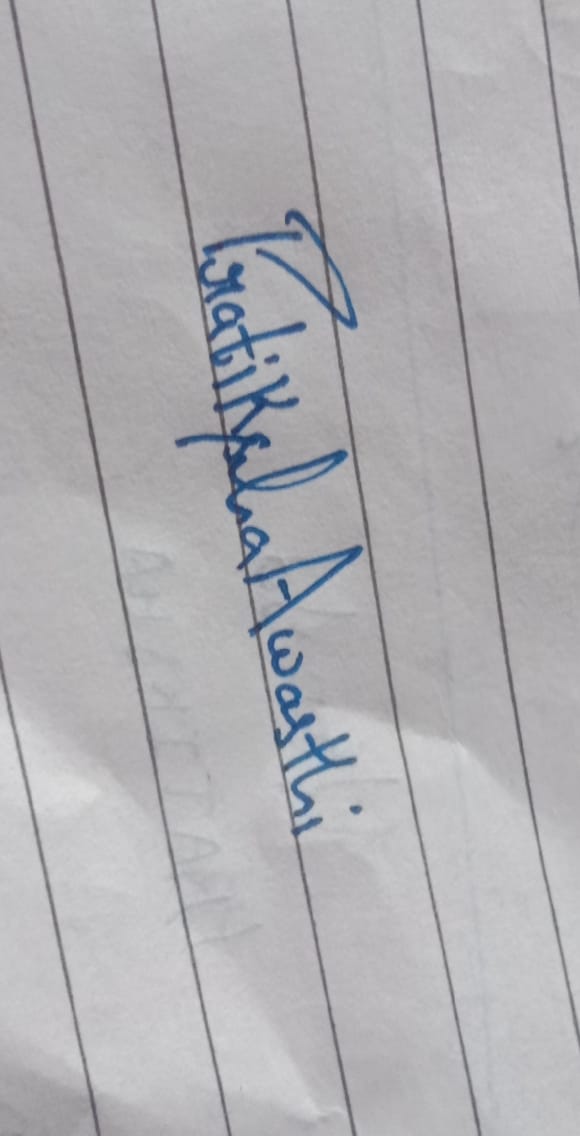 Pratiksha Awasthi